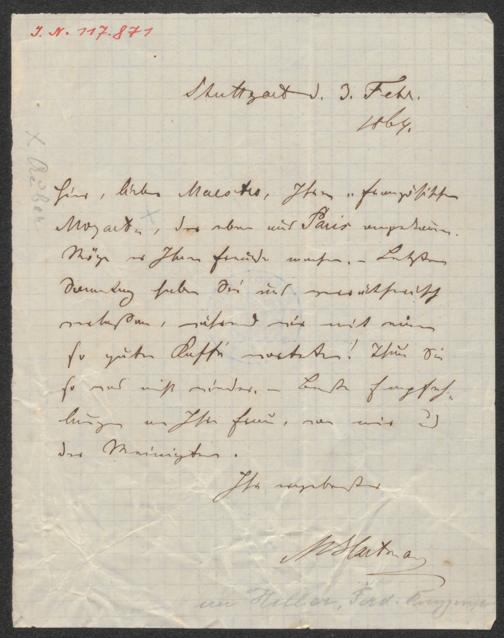 I. N. 117.871
Stuttgart d. 3. Febr.
1864.
Hier, lieber Maestro, Ihren „französischen
Mozart", der eben aus Paris angekommen.
Möge er Ihnen Freude machen. – Letzten
Samstag haben Sie uns verrätherisch
verlassen, während wir mit einem
so guten Kaffé warteten! Thun Sie
so was nicht wieder. – Beste Empfeh-
lungen an Ihre Frau, von mir und
der Meinigen.
Ihr ergebenster
M Hartmann
an Hiller, Ferd.